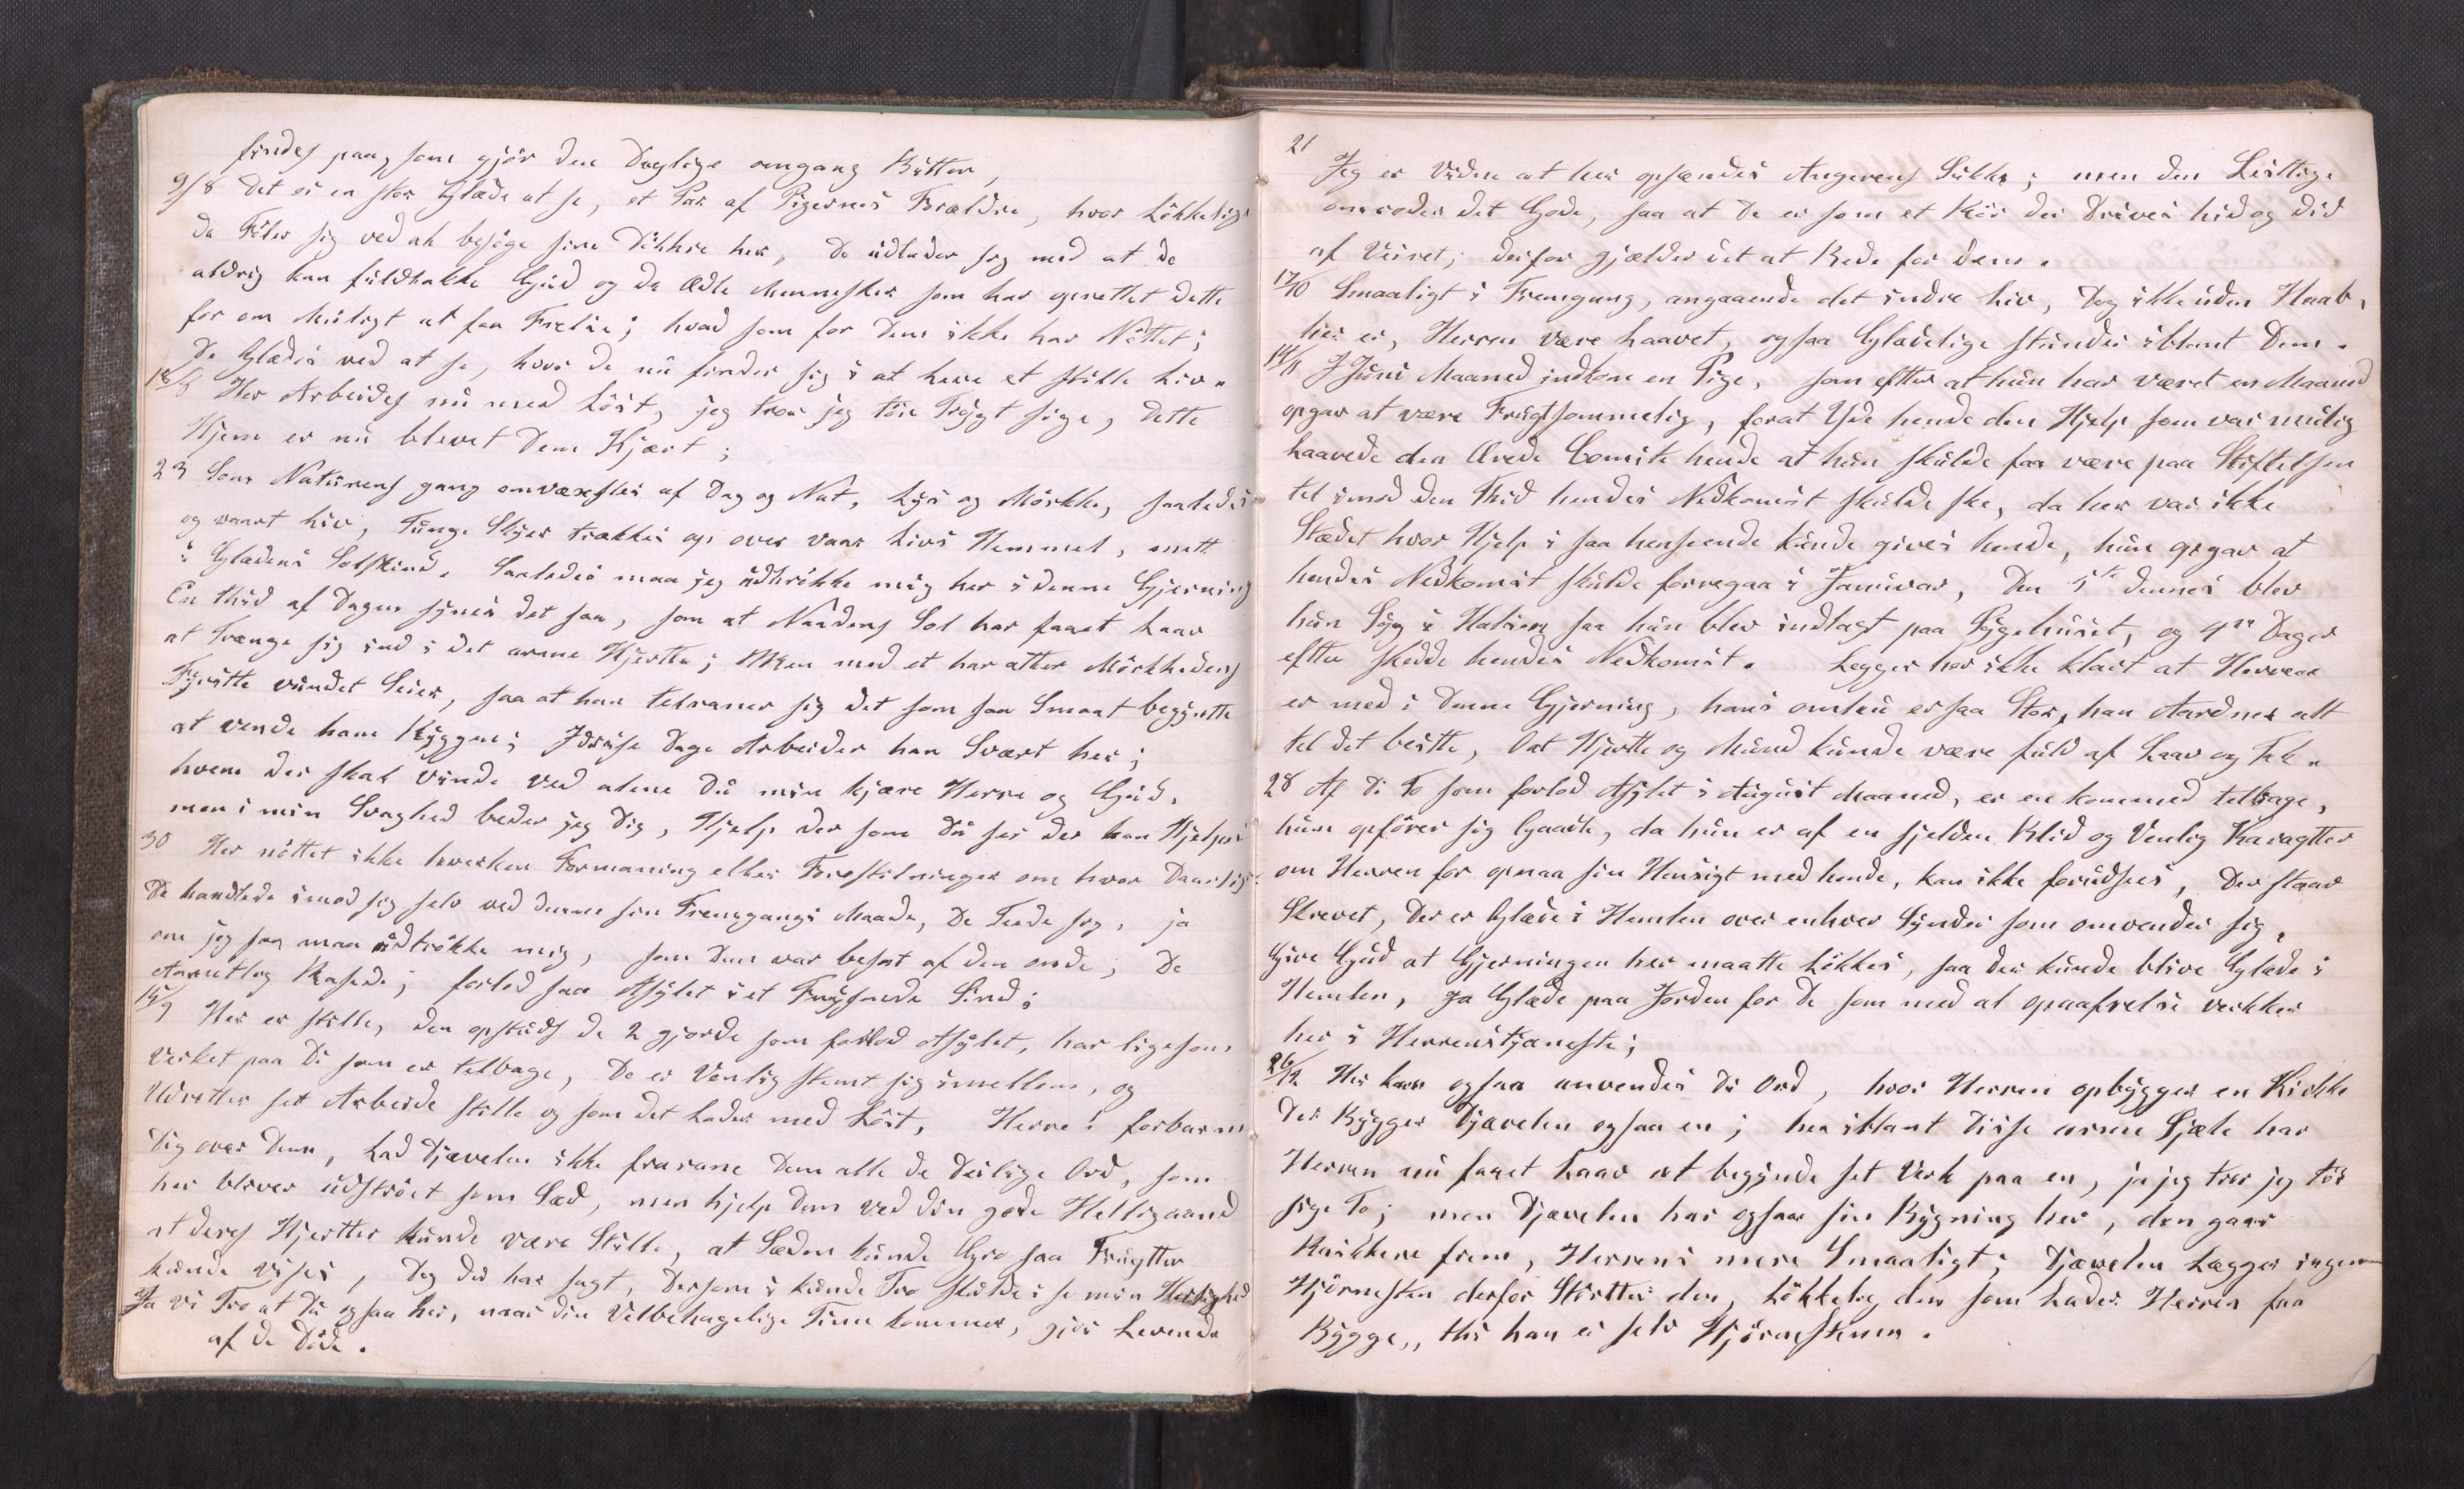 findes paa, som gjör den Daglige omgang Bitter,
9/8 Det er en stor Glæde at se, et Par af Pigernes Forældre, hvor Lökkelige
da Föler sig ved at besöge sine Döttre her, De udlader sig med at de
aldrig kan fuldtakke Gud og de Ædle Mennesker som har oprettet dette
for om Muligt at faa Frelse; hvad som for Dem ikke har Nöttet;
De Glædes ved at se, hvor de nu finder sig i at leve et stille Liv.
18/8 Her Arbeides nu med Löst, jeg tror jeg tör Trygt sige, Dette
Hjem er nu blevet Dem Kjært;
23 Som Naturens gang omvæxsles af Dag og Nat, Lys og Mörkke, saaledes
og vaart Liv, Tunge Skyer trækkes op over vaar Livs Hemmel, mett
i Glædens Solskind. Saaledes maa jeg udtrökke mig her i denne Gjerning
En Thid af Dagen synes det saa, som at Naadens Sol har faaet Laav
at Trænge sig ind i det arme Hjertte; Men med et har atter Mörkhedens
Fyrstte vundet Seier, saa at han telraner sig det som saa Smaat begyntte
at vende ham Ryggen; I disse Dage Arbeider han Svært her;
hvem der skal vinde ved alene Du min kjære Herre og Gud.
men i min Svaghed beder jeg Dig, Hjelp der som Du ser der kan Hjelpes
30 Her nöttet ikke hverken Formaning eller Forestilninger om hvor Daarlig
De handlede imod sig selv ved denne sin Fremgangs Maade, De Teede sig, ja
om jeg saa maa udtrökke mig, som Dem var besat af den onde; De
Aarentlig Rasede; forlod saa Asylet i et Frysende Sind;
14/9 Her er stille, den opstuds de 2 gjorde som forlod Asylet, har ligesom
virket paa De som er telbage, De er Venlig stemt sig imellem, og
Udretter set Arbeide stille og som det lader med Löst, Herre! forbarm
Dig over Dem, Lad Djævelen ikke frarane Dem alle de Deilige Ord, som
her bliver udströet som Sæd, men hjelp Dem ved din gode Helligaand
at deres Hjertter kunde være Stille, at Sæden kunde Gro saa Frugtter
kunde vises, Dog Du har sagt, Dersom i kunde Tro skulde i se min Herlighed
Ja vi Tro at Du ogsaa her, naar din Velbehagelige Time kommer, gjör Levende
af de Döde.
21
Jeg er Viden at her opsændes Angerens Sukke; men den Listtige
omroder det Gode, saa at De er som et Rör der Drives hid og did
af Veiret; derfor gjælder det at Bede for dem.
17/10 Smaaligt i Fremgang, angaaende det indre Liv, Dog ikke uden Haab,
her er, Herren være Laavet, ogsaa Glædelige stunder iblant Dem.
14/11 I Juni Maaned indkom en Pige, som efter at hun har været en Maaned
opgav at være Frugtsommelig, forat Yde hende den Hjelp som var mulig
laavede den Ærede Comite hende at hun skulde faa være paa Stiftelsen
tel imod den Thid hendes Nedkomst skulde ske, da her var ikke
Stædet hvor Hjelp i saa henseende kunde gives hende, hun opgav at
hendes Nedkomst skulde forregaa i Januvar, Den 5te dennes blev
hun Syg i Halsen saa hun blev indlagt paa Sygehuset, og 4re Dager
efter skedde hendes Nedkomst. Legger her ikke klart at Herren
er med i Denne Gjerning, hans omhu er saa Stor, han Aardner alt
tel det bestte, O at Hjertte og Mund kunde være fuld af Laav og Tak.
28 Af De To som forlod Asylet i August Maaned, er en kommed telbage,
hun opförer sig Gaadt, da hun er af en sjelden Blid og Venlig Karagtter
om Herren for opnaa sin Hensigt med hende, kan ikke forudsees, Der staar
Skrevet, Der er Glæde i Hemlen over enhver Synder som omvender sig,
Give Gud at Gjerningen her maatte Lökkes, saa der kunde blive Glæde i
Hemlen, ja Glæde paa Jorden for De som med al opaafrelse verkker
her i Herrenstjæneste;
26/12 Her kan ogsaa anvendes De Ord, hvor Herren opbygger en Kirkke
Der Bygger Djævelen ogsaa en; her iblant Disse arme Sjæle har
Herren nu faaet Laav at begynde set Verk paa en, ja jeg tror jeg tör
sige To; men Djævelen har ogsaa sin Bygning her, den gaar
Raskkere frem, Herrens mere Smaaligt; Djævelen Lægger ingen
Hjörnesten derfor Störtter den, Lökkelig den som Lader Herren faa
Bygge,, thi han er selv Hjörnestenen.